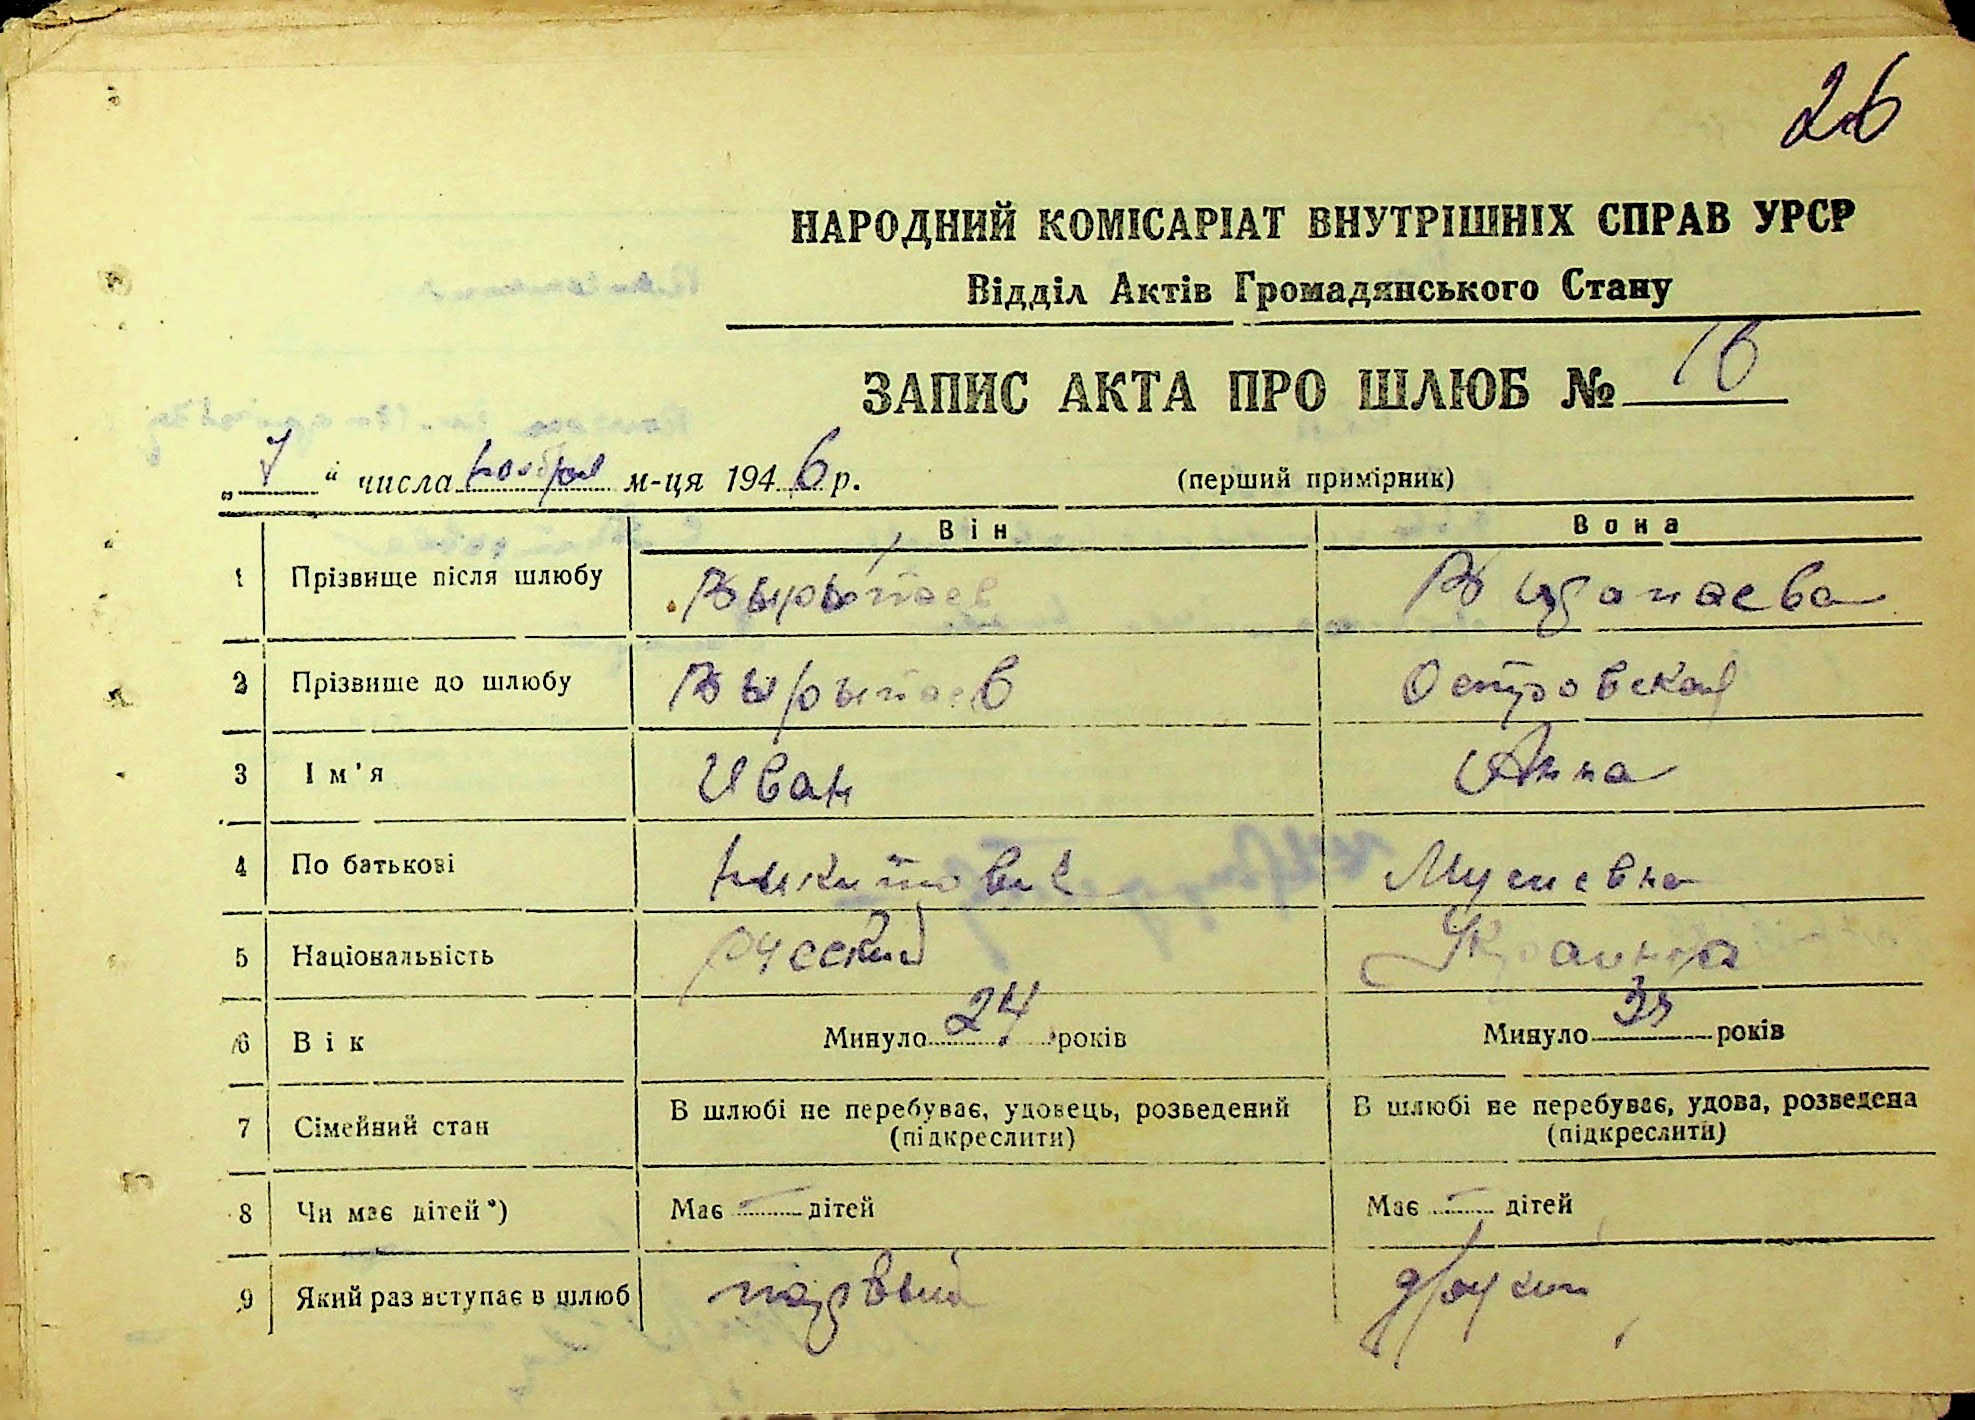 26
НАРОДНИЙ КОМІСАРІАТ ВНУТРІШНІХ СПРАВ УРСР
Відділ Актів Громадянського Стану
ЗАПИС АКТА ПРО ШЛЮБ № 16
„ 7 “ числа ноября м-ця 1946 р. (перший примірник)
Він Вона
1 Прізвище після шлюбу Вырыпаев
2 Прізвище до шлюбу Вырыпаев Островская
3 Ім'я Иван Анна
4 По батькові Никитович
5 Національність русский Украинка
6 Вік Минуло 24 років Минуло років
7 Сімейний стан В шлюбі не перебуває, удовець, розведений (підкреслити) В шлюбі не перебуває, удова, розведена (підкреслити)
8 Чи має дітей*) Має — дітей Має — дітей
9 Який раз вступає в шлюб первый